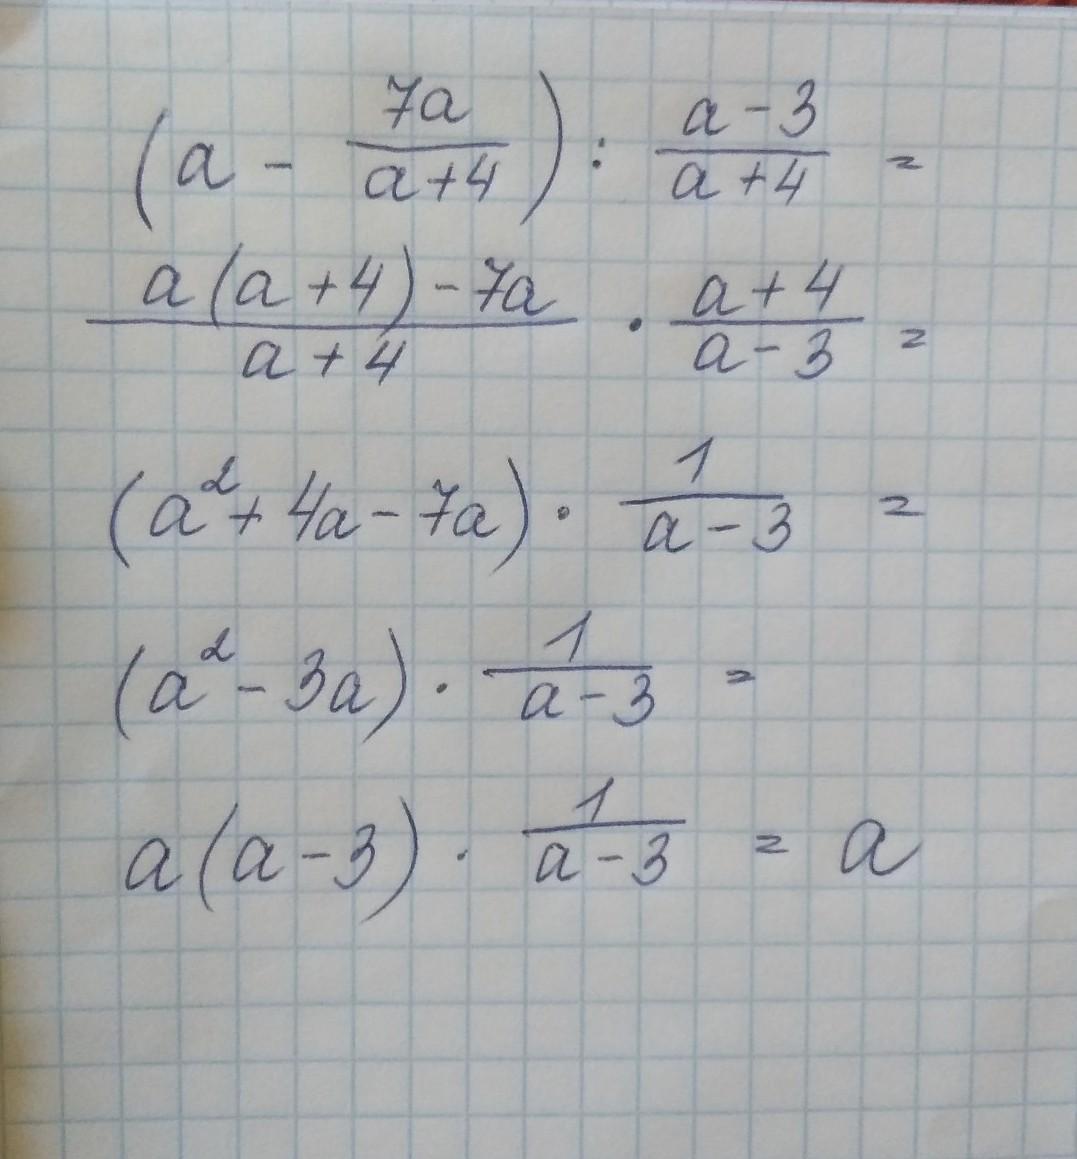 (a - 7a/(a+4)) : (a-3)/(a+4) =
(a(a+4)-7a)/(a+4) · (a+4)/(a-3) =
(a²+4a-7a) · 1/(a-3) =
(a²-3a) · 1/(a-3) =
a(a-3) · 1/(a-3) = a